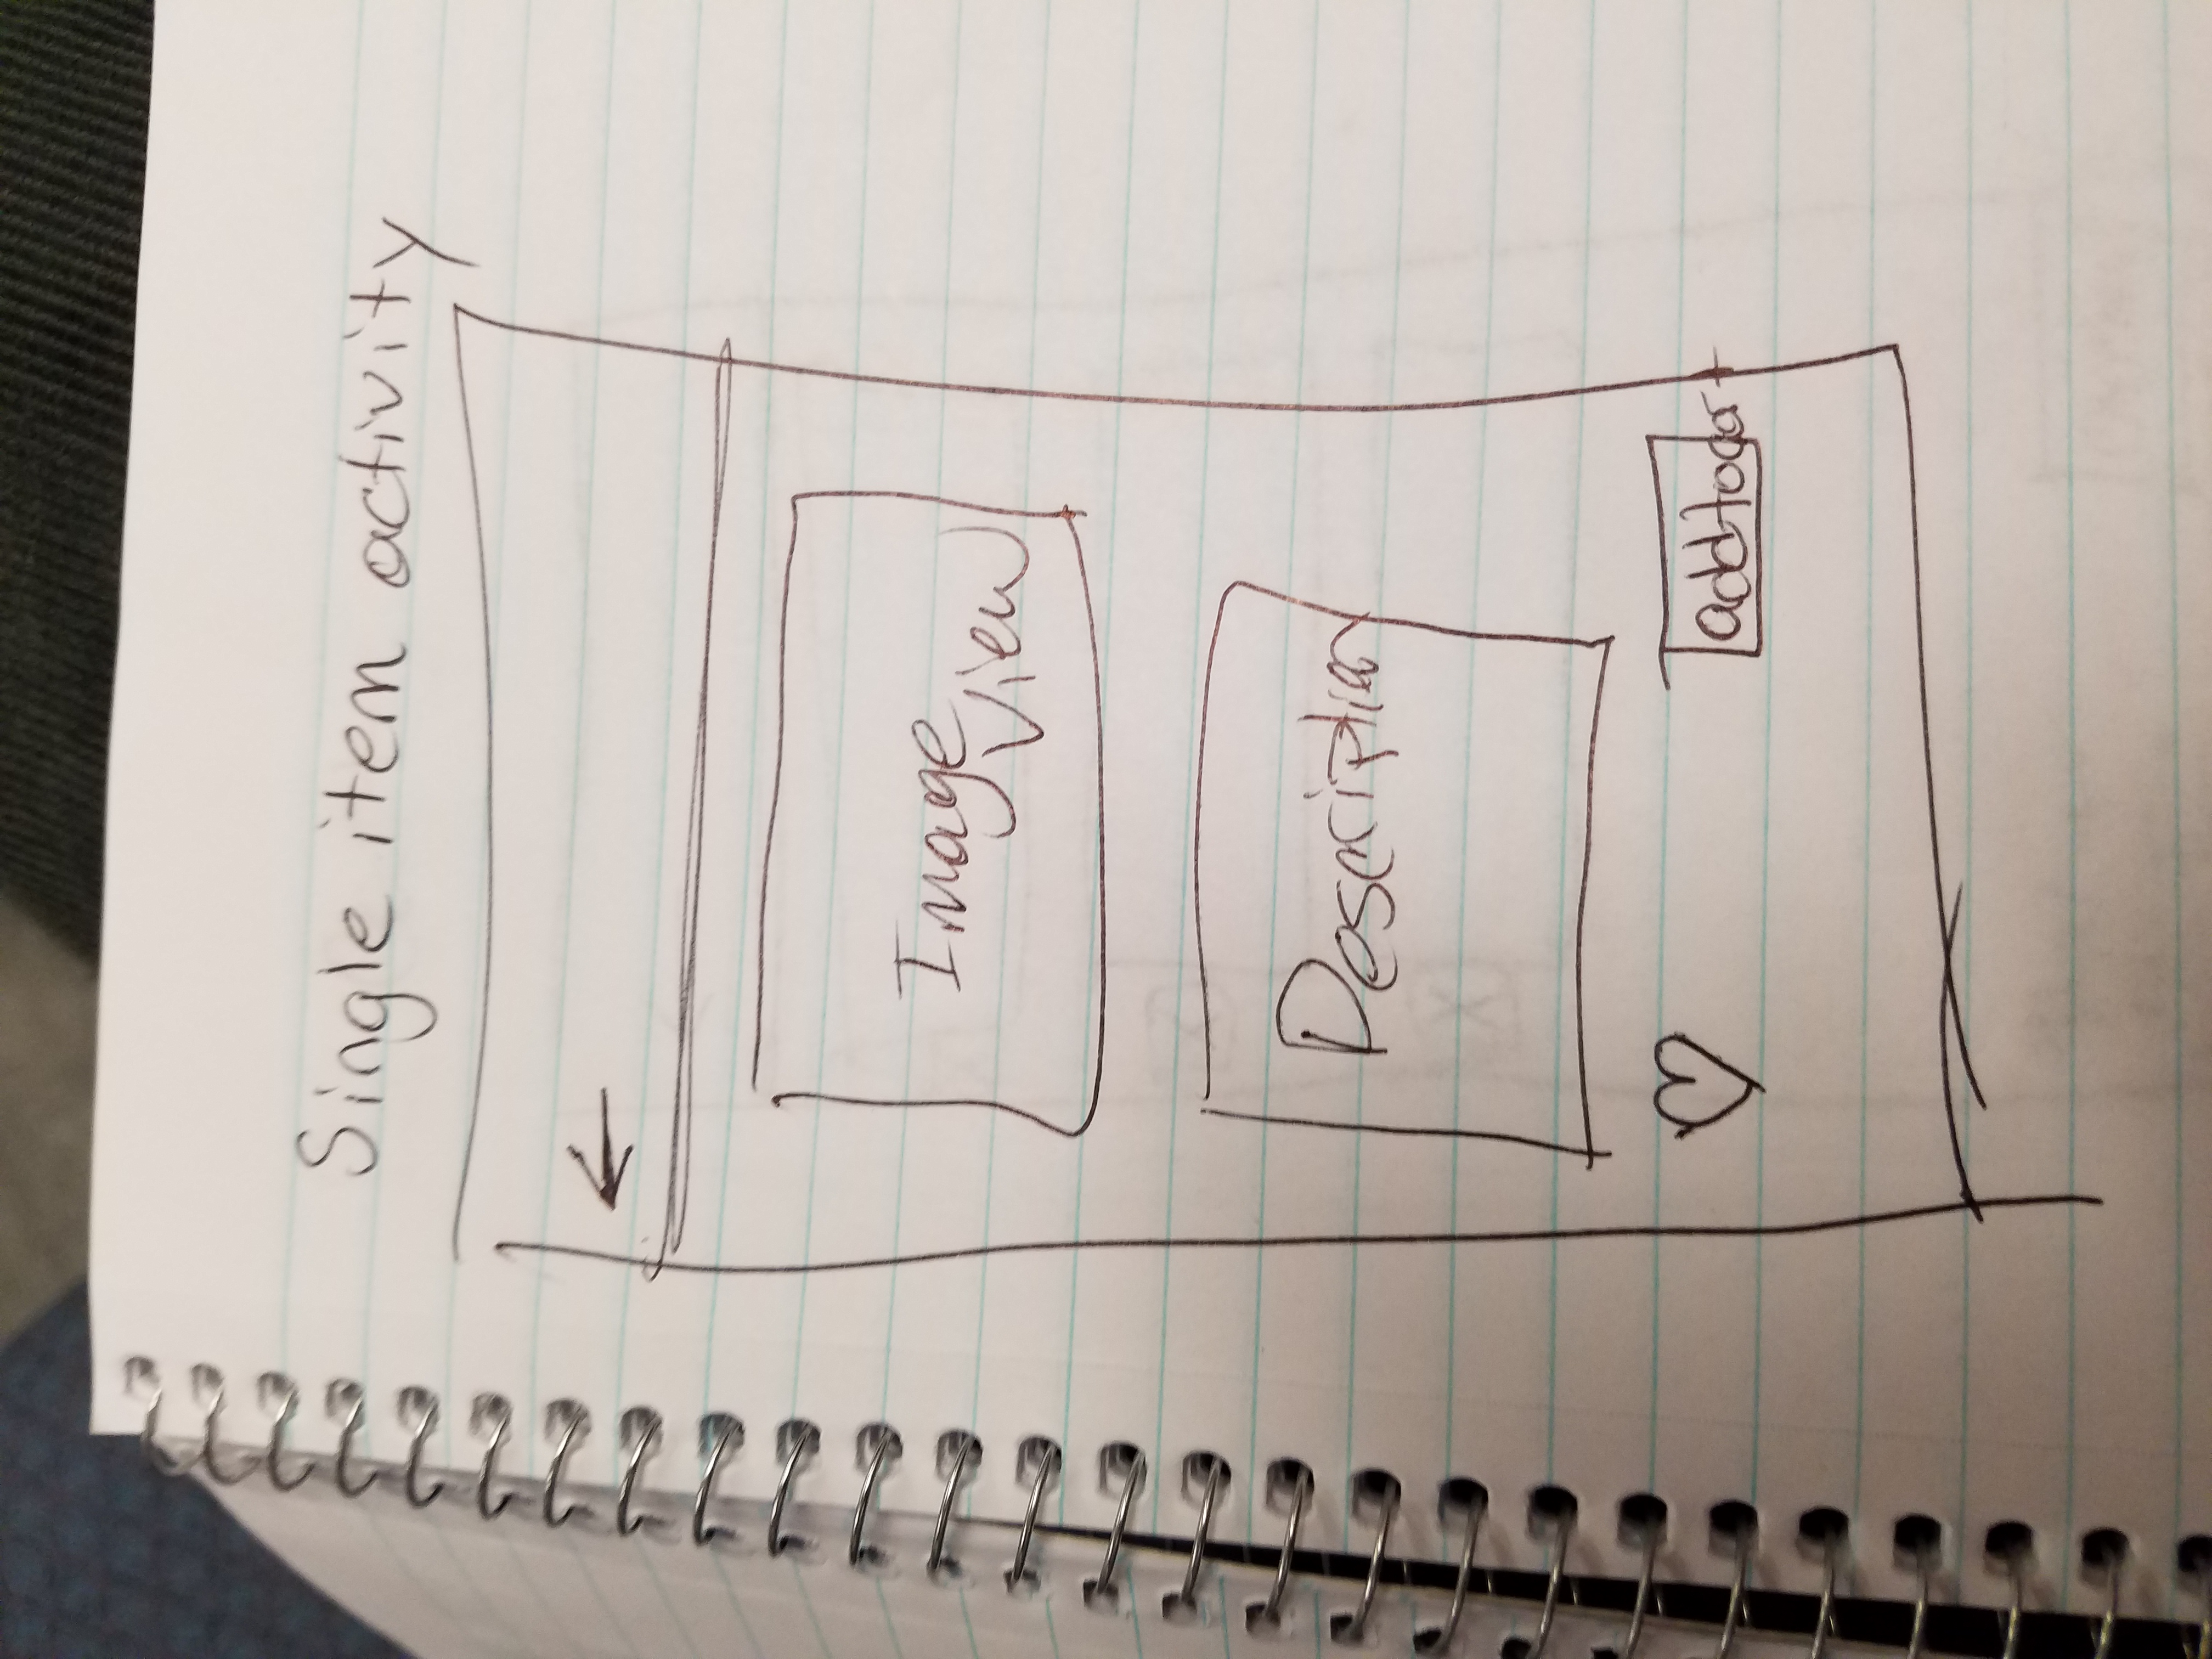 Single item activity
Image
View
Description
add to cart